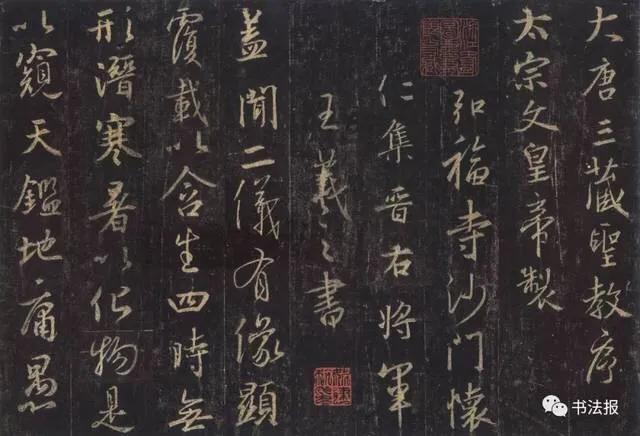 大唐三藏聖教序
太宗文皇帝製
弘福寺沙門懷
仁集晉右將軍
王羲之書
蓋聞二儀有像顯
覆載以含生四時無
形潛寒暑以化物是
以窺天鑑地庸愚
书法报